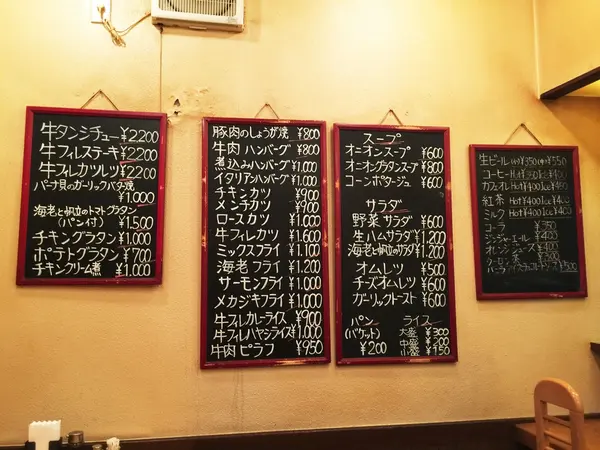 牛タンシチュー ¥2200
牛フィレステーキ ¥2200
牛フィレカツレツ ¥2200
バーナ貝のガーリックバター焼
¥1.000
海老と帆立のトマトグラタン
(パン付) ¥1.500
チキングラタン ¥1.000
ポテトグラタン ¥700
チキンクリーム煮 ¥1.000
豚肉のしょうが焼 ¥800
牛肉ハンバーグ ¥800
煮込みハンバーグ ¥1.000
イタリアンハンバーグ ¥1.000
チキンカツ ¥900
メンチカツ ¥900
ロースカツ ¥1.000
牛フィレカツ ¥1.600
ミックスフライ ¥1.100
海老フライ ¥1.200
サーモンフライ ¥1.000
メカジキフライ ¥1.000
牛フィレカレーライス ¥900
牛フィレハヤシライス ¥1.000
牛肉ピラフ ¥950
スープ
オニオンスープ ¥600
オニオングラタンスープ ¥800
コーンポタージュ ¥600
サラダ
野菜サラダ ¥600
生ハムサラダ ¥1.200
海老と帆立のサラダ ¥1.200
オムレツ ¥500
チーズオムレツ ¥600
ガーリックトースト ¥600
パン
(バケット)
¥200
ライス
大盛 ¥300
中盛 ¥200
小盛 ¥150
生ビール ¥350 (中) ¥550
コーヒー Hot ¥350 Ice ¥400
カフェオレ Hot ¥400 Ice ¥450
紅茶 Hot ¥400 Ice ¥400
ミルク Hot ¥400 Ice ¥400
コーラ ¥350
ジンジャーエール ¥400
オレンジジュース
ウーロン茶 ¥300
¥500